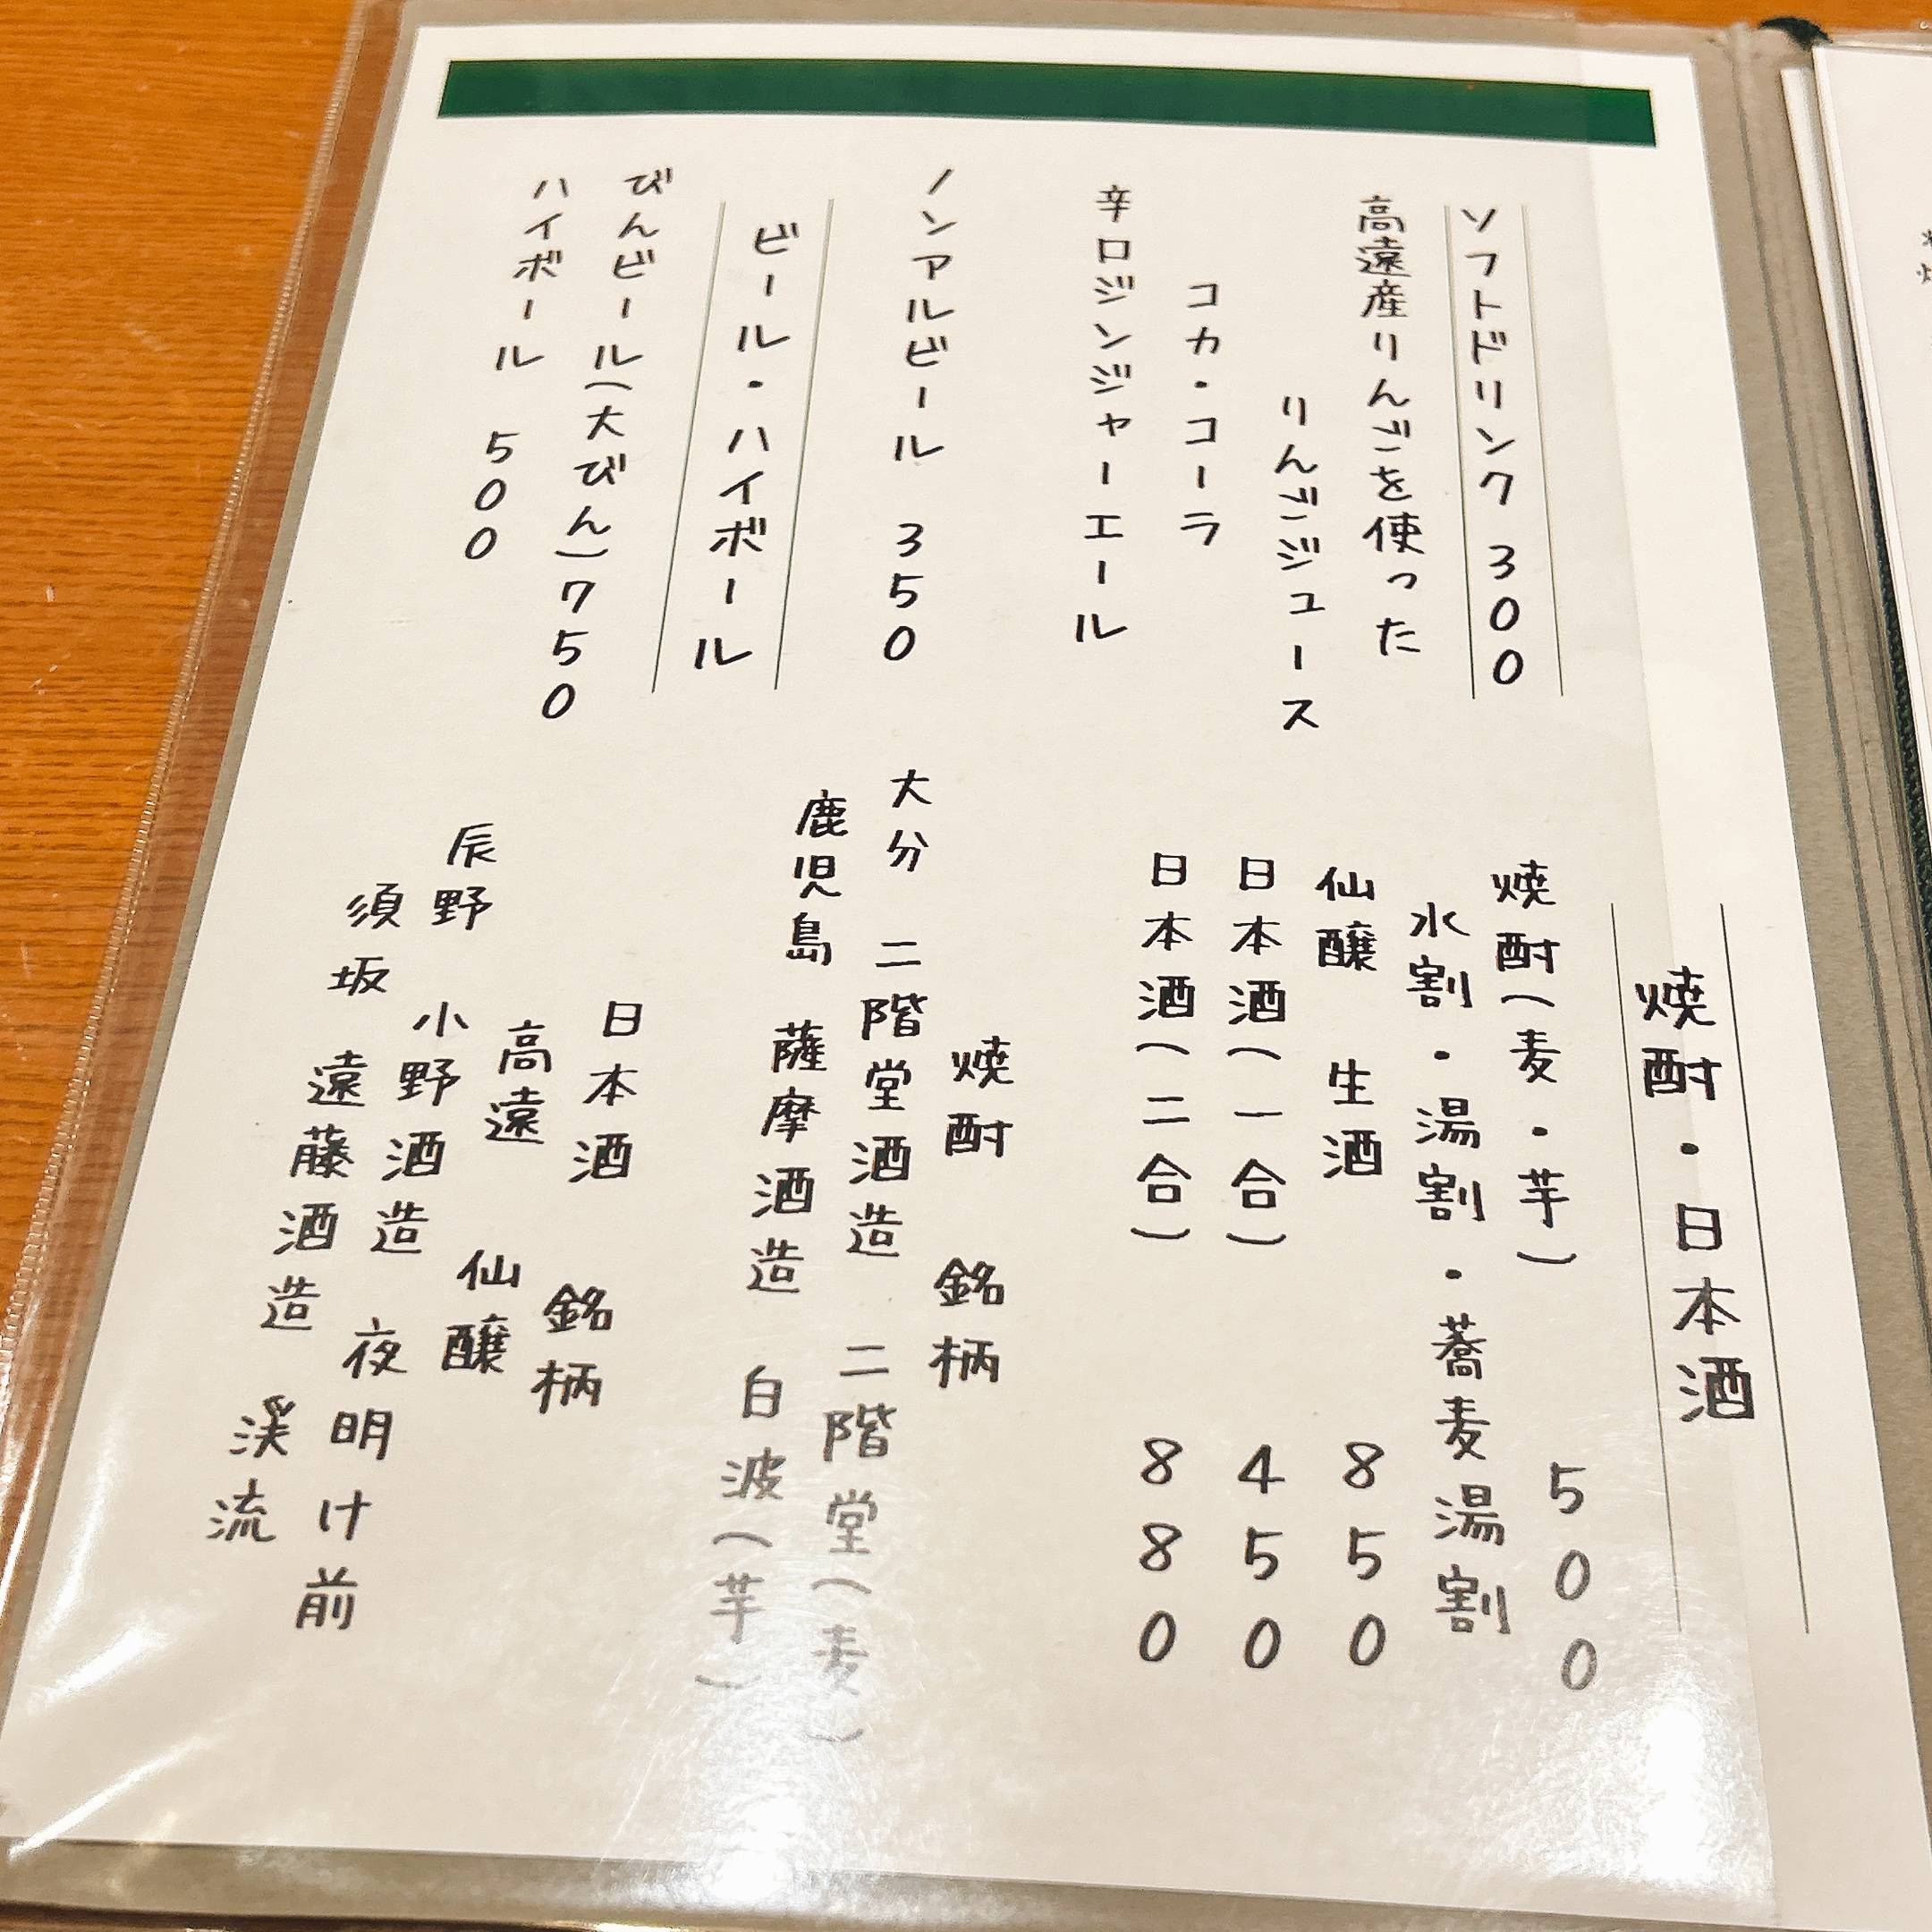 ソフトドリンク 300
高遠産りんごを使った
りんごジュース
コカ・コーラ
辛口ジンジャーエール
ノンアルビール 350
ビール・ハイボール
びんビール(大びん)750
ハイボール 500
焼酎・日本酒
焼酎(麦・芋) 500
水割・湯割・蕎麦湯割
仙醸 生酒 850
日本酒(一合) 450
日本酒(二合) 880
焼酎 銘柄
大分 二階堂酒造 二階堂(麦)
鹿児島 薩摩酒造 白波(芋)
日本酒 銘柄
高遠 仙醸
辰野 小野酒造 夜明け前
須坂 遠藤酒造 渓流